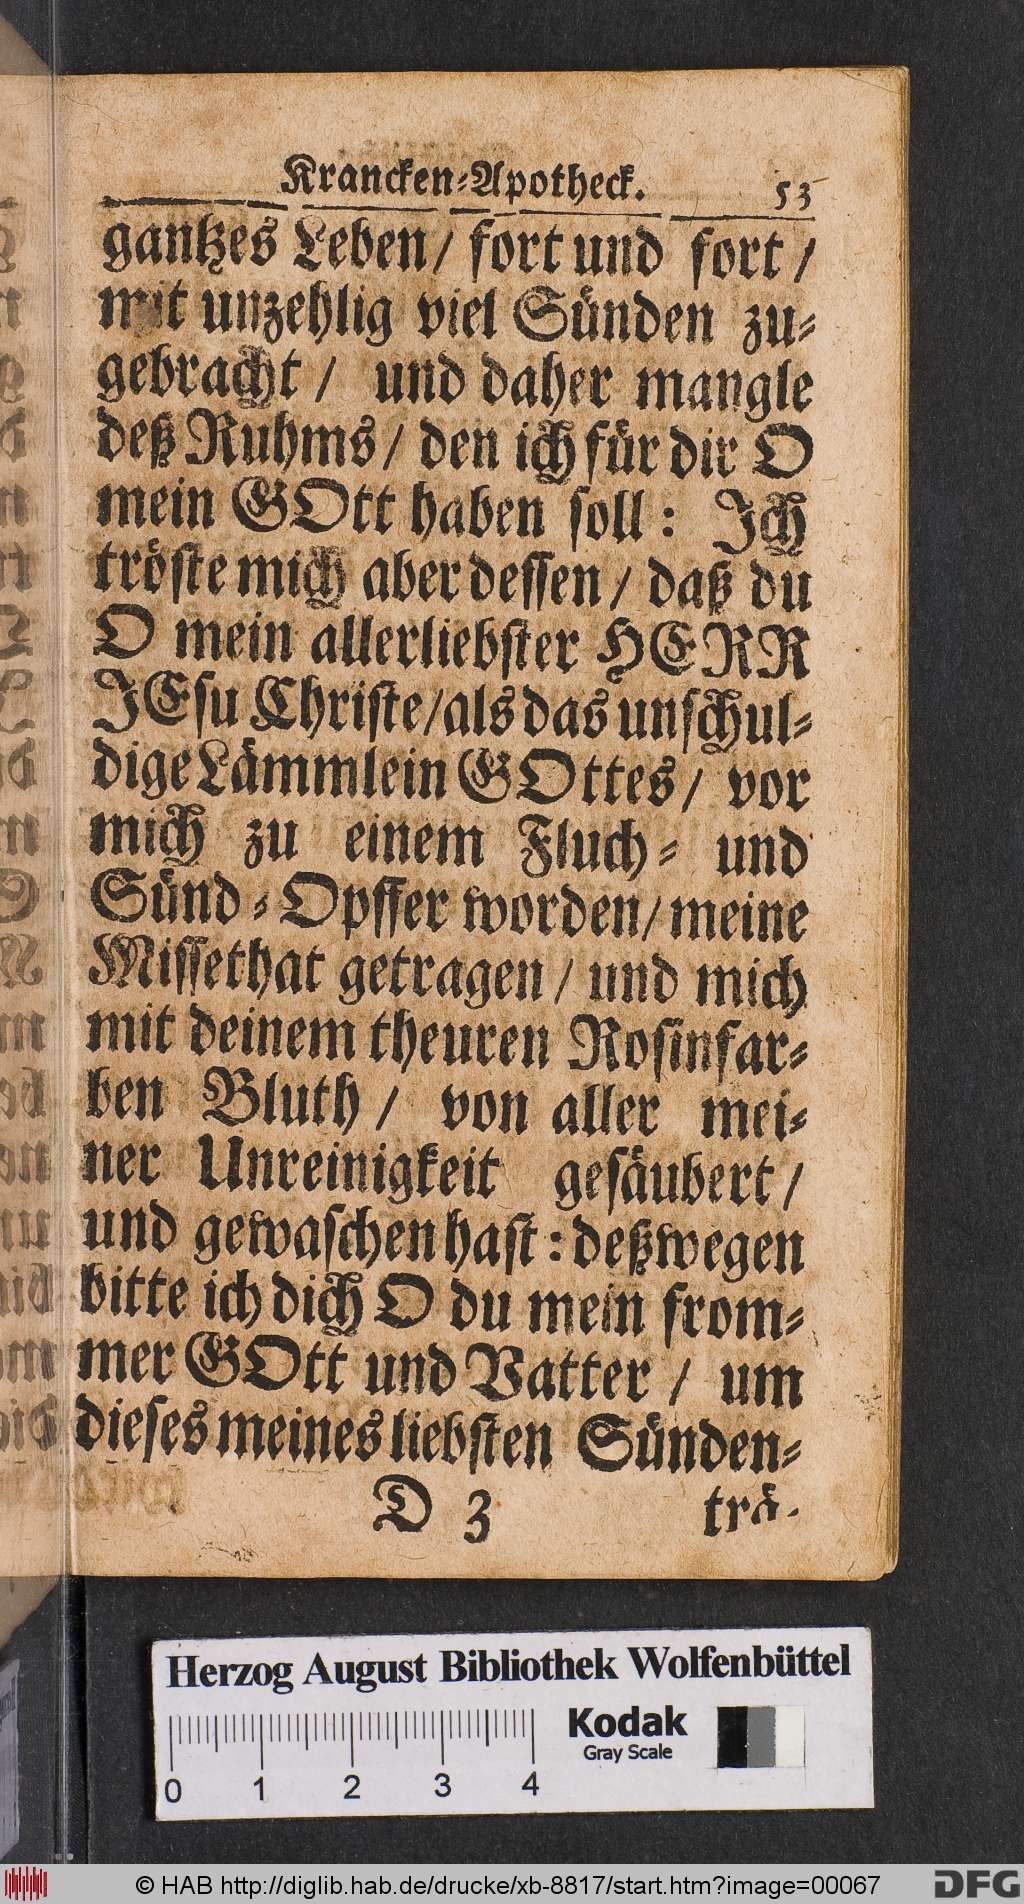 Krancken-Apotheck. 53
gantzes Leben / fort und fort /
mit unzehlig viel Sünden zu-
gebracht / und daher mangle
deß Ruhms / den ich für dir O
mein GOtt haben soll: Ich
tröste mich aber dessen / daß du
O mein allerliebster HERR
JEsu Christe / als das unschul-
dige Lämmlein GOttes / vor
mich zu einem Fluch- und
Sünd-Opffer worden / meine
Missethat getragen / und mich
mit deinem theuren Rosinfar-
ben Bluth / von aller mei-
ner Unreinigkeit gesäubert /
und gewaschen hast: deßwegen
bitte ich dich O du mein from-
mer GOtt und Vatter / um
dieses meines liebsten Sünden-
D 3 trä-
Herzog August Bibliothek Wolfenbüttel
Kodak
Gray Scale
0 1 2 3 4
© HAB http://diglib.hab.de/drucke/xb-8817/start.htm?image=00067
DFG